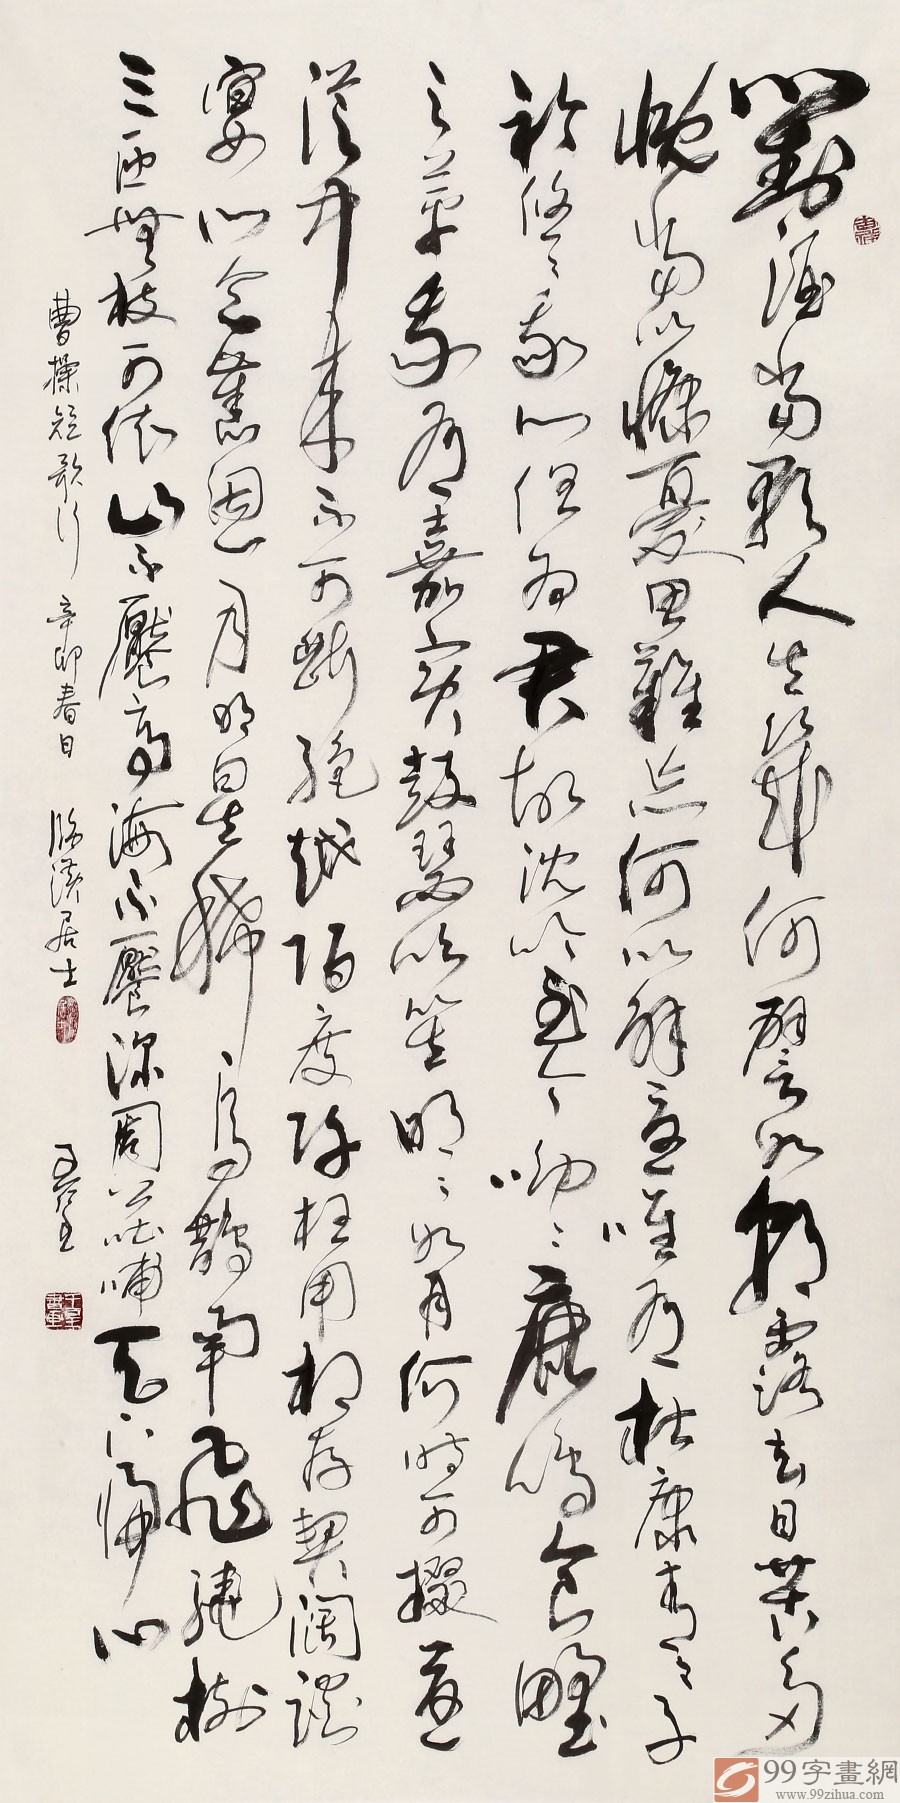 對酒當歌人生幾何譬如朝露去日苦多
慨當以慷憂思難忘何以解憂唯有杜康青青子
衿悠悠我心但為君故沈吟至今呦呦鹿鳴食野
之苹我有嘉賓鼓瑟吹笙明明如月何時可掇憂
從中來不可斷絕越陌度阡枉用相存契闊談
宴心念舊恩月明星稀烏鵲南飛繞樹
三匝無枝可依山不厭高海不厭深周公吐哺天下歸心
曹操短歌行 辛卯春日 居士
99字畫網
www.99zihua.com